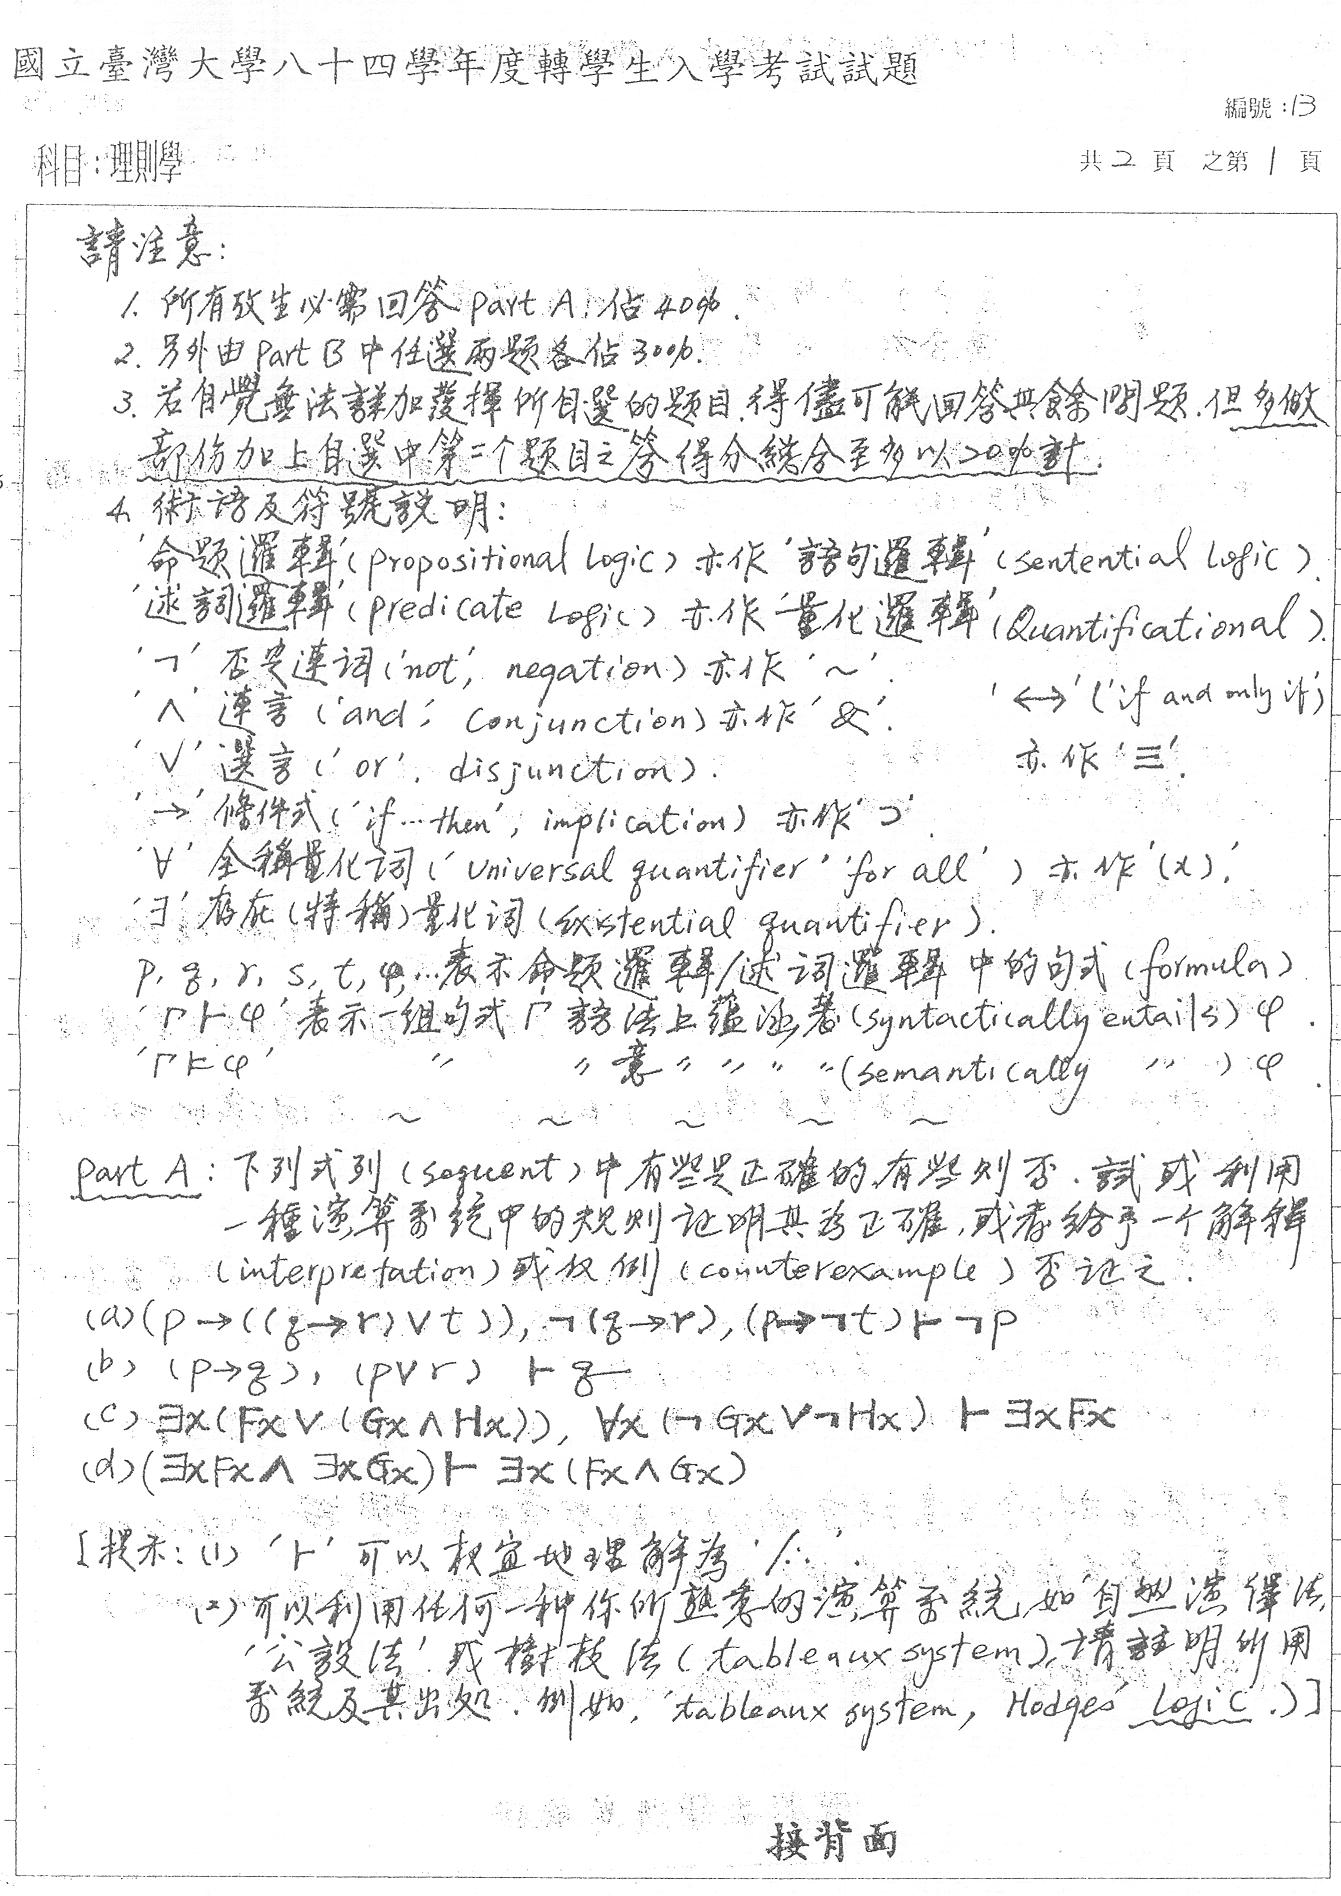 國立臺灣大學八十四學年度轉學生入學考試試題
編號:13
科目:理則學
共2頁 之第1頁
請注意:
1. 所有考生必需回答 Part A, 佔40%.
2. 另外由 Part B 中任選兩題各佔30%.
3. 若自覺無法詳加發揮所自選的題目,得儘可能回答其餘問題.但多做
部份加上自選中第二个題目之答得分總合至多以20%計.
4. 術語及符號說明:
'命題邏輯'(propositional logic)亦作'語句邏輯'(sentential logic).
'述詞邏輯'(predicate logic)亦作'量化邏輯'(Quantificational).
'¬' 否定連詞('not', negation)亦作'~'.
'∧' 連言('and', conjunction)亦作'&'. '↔'('if and only if')
'∨' 選言('or', disjunction). 亦作'≡'.
'→' 條件式('if...then', implication)亦作'⊃'.
'∀' 全稱量化詞('universal quantifier' 'for all')亦作'(x)'.
'∃' 存在(特稱)量化詞(existential quantifier).
p, q, r, s, t, φ,...表示命題邏輯/述詞邏輯中的句式(formula)
'Γ⊢φ' 表示一組句式Γ語法上蘊涵著(syntactically entails)φ.
'Γ⊨φ' 〃 〃意〃〃〃〃(semantically 〃)φ.
~ ~ ~ ~ ~
Part A: 下列式列(sequent)中有些是正確的,有些則否.試或利用
一種演算系統中的規則証明其為正確,或者給予一个解釋
(interpretation)或反例(counterexample)否証之.
(a) (p→((q→r)∨t)), ¬(q→r), (p→¬t)⊢¬p
(b) (p→q), (p∨r) ⊢ q
(c) ∃x(Fx∨(Gx∧Hx)), ∀x(¬Gx∨¬Hx) ⊢ ∃xFx
(d) (∃xFx∧ ∃xGx)⊢ ∃x(Fx∧Gx)
[提示:(1) '⊢'可以权宜地理解為'/∴'.
(2) 可以利用任何一种你所熟悉的演算系統,如'自然演繹法',
'公設法'或樹枝法(tableaux system),請註明所用
系統及其出処.例如,'tableaux system, Hodges' Logic'.)]
接背面